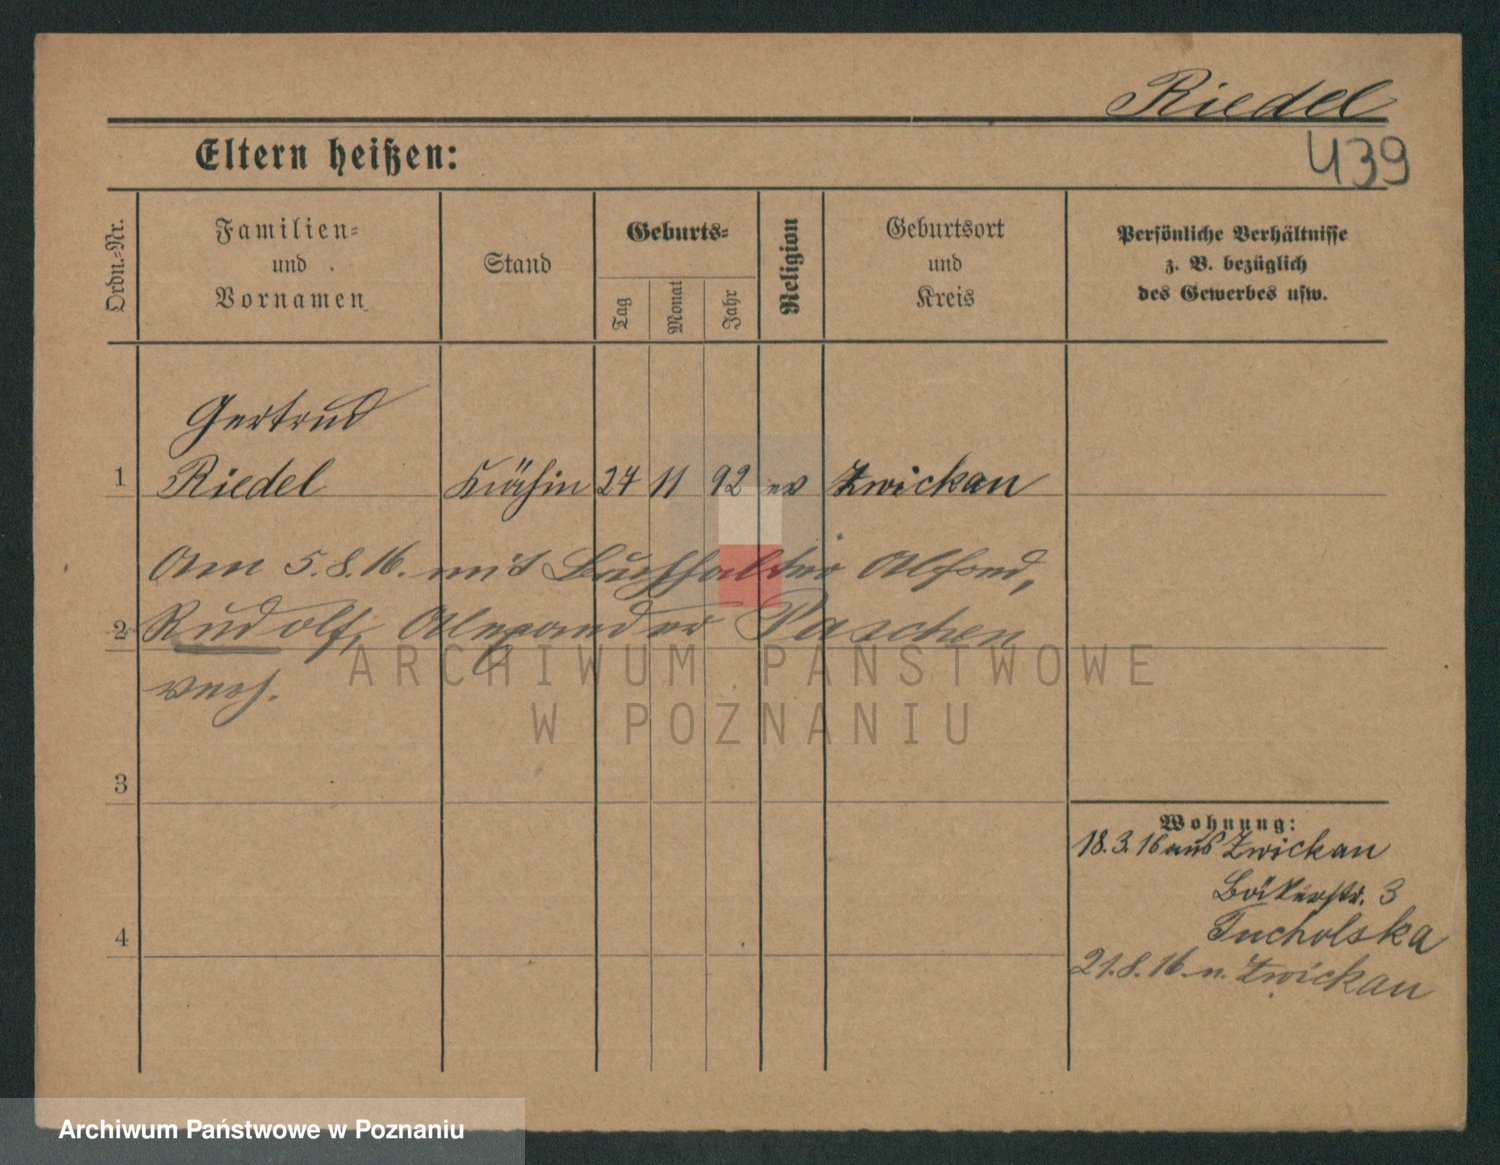 Riedel
439
Eltern heißen:
Ordn.-Nr.
Familien-
und
Vornamen
Stand
Geburts-
Tag
Monat
Jahr
Religion
Geburtsort
und
Kreis
Persönliche Verhältnisse
z. B. bezüglich
des Gewerbes usw.
Gertrud
1 Riedel 24 11 92 ev Zwickau
Am 5.8.16. mit Buchhalter Alfred,
2 Rudolf, Alexander Paschen
verh.
3
Wohnung:
18.3.16 aus Zwickau
3
Tucholska
4
21.8.16 n. Zwickau
ARCHIWUM PAŃSTWOWE
W POZNANIU
Archiwum Państwowe w Poznaniu